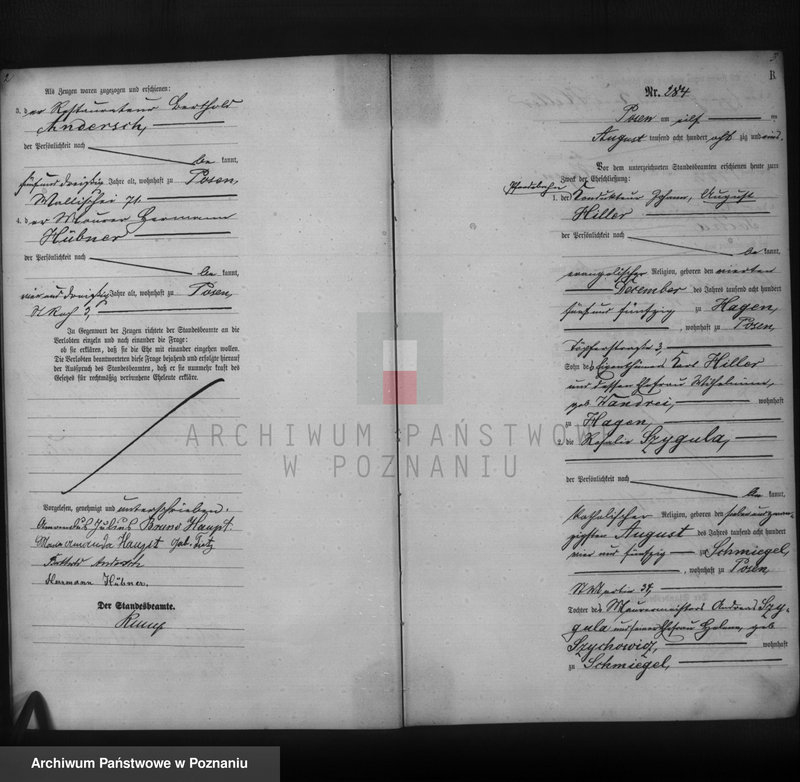 2
Als Zeugen waren zugezogen und erschienen:
3. der Restaurateur Berthold
Andersch,
der Persönlichkeit nach
be kannt,
fünfunddreißig Jahre alt, wohnhaft zu Posen,
Wallischei 71.
4. der Maurer Hermann
Hübner
der Persönlichkeit nach
be kannt,
vierunddreißig Jahre alt, wohnhaft zu Posen,
In Gegenwart der Zeugen richtete der Standesbeamte an die
Verlobten einzeln und nach einander die Frage:
ob sie erklären, daß sie die Ehe mit einander eingehen wollen.
Die Verlobten beantworteten diese Frage bejahend und erfolgte hierauf
der Ausspruch des Standesbeamten, daß er sie nunmehr kraft des
Gesetzes für rechtmäßig verbundene Eheleute erkläre.
Vorgelesen, genehmigt und unterschrieben.
Amandus Julius Bruno Haupt
Amanda Haupt geb.
Berthold Andersch
Hermann Hübner.
Der Standesbeamte.
3
B
Nr. 284
Posen am eilf ten
August tausend acht hundert acht zig und eins.
Vor dem unterzeichneten Standesbeamten erschienen heute zum
Zweck der Eheschließung:
Pferdebahn
1. der Kondukteur Johann, August
Hiller
der Persönlichkeit nach
be kannt,
evangelischer Religion, geboren den vierten
Dezember des Jahres tausend acht hundert
fünf und fünfzig zu Hagen,
, wohnhaft zu Posen,
Sohn des Eigenthümers Karl Hiller
und dessen Ehefrau Wilhelmine,
geb. Wandrei, wohnhaft
zu Hagen,
2. die Rosalie Szygula,
der Persönlichkeit nach
be kannt,
katholischer Religion, geboren den siebenundzwan-
zigsten August des Jahres tausend acht hundert
vier und fünfzig zu Schmiegel
, wohnhaft zu Posen
St Martin 37,
Tochter des Maurermeisters Andreas Szy-
gula und seiner Ehefrau Helene, geb
Szychowicz, wohnhaft
zu Schmiegel,
ARCHIWUM PAŃSTWOWE
W POZNANIU
Archiwum Państwowe w Poznaniu